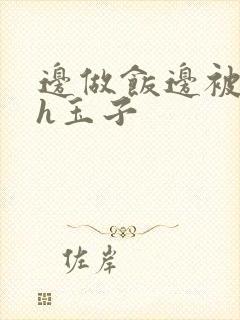 邊做飯邊被
h玉子
佐岸